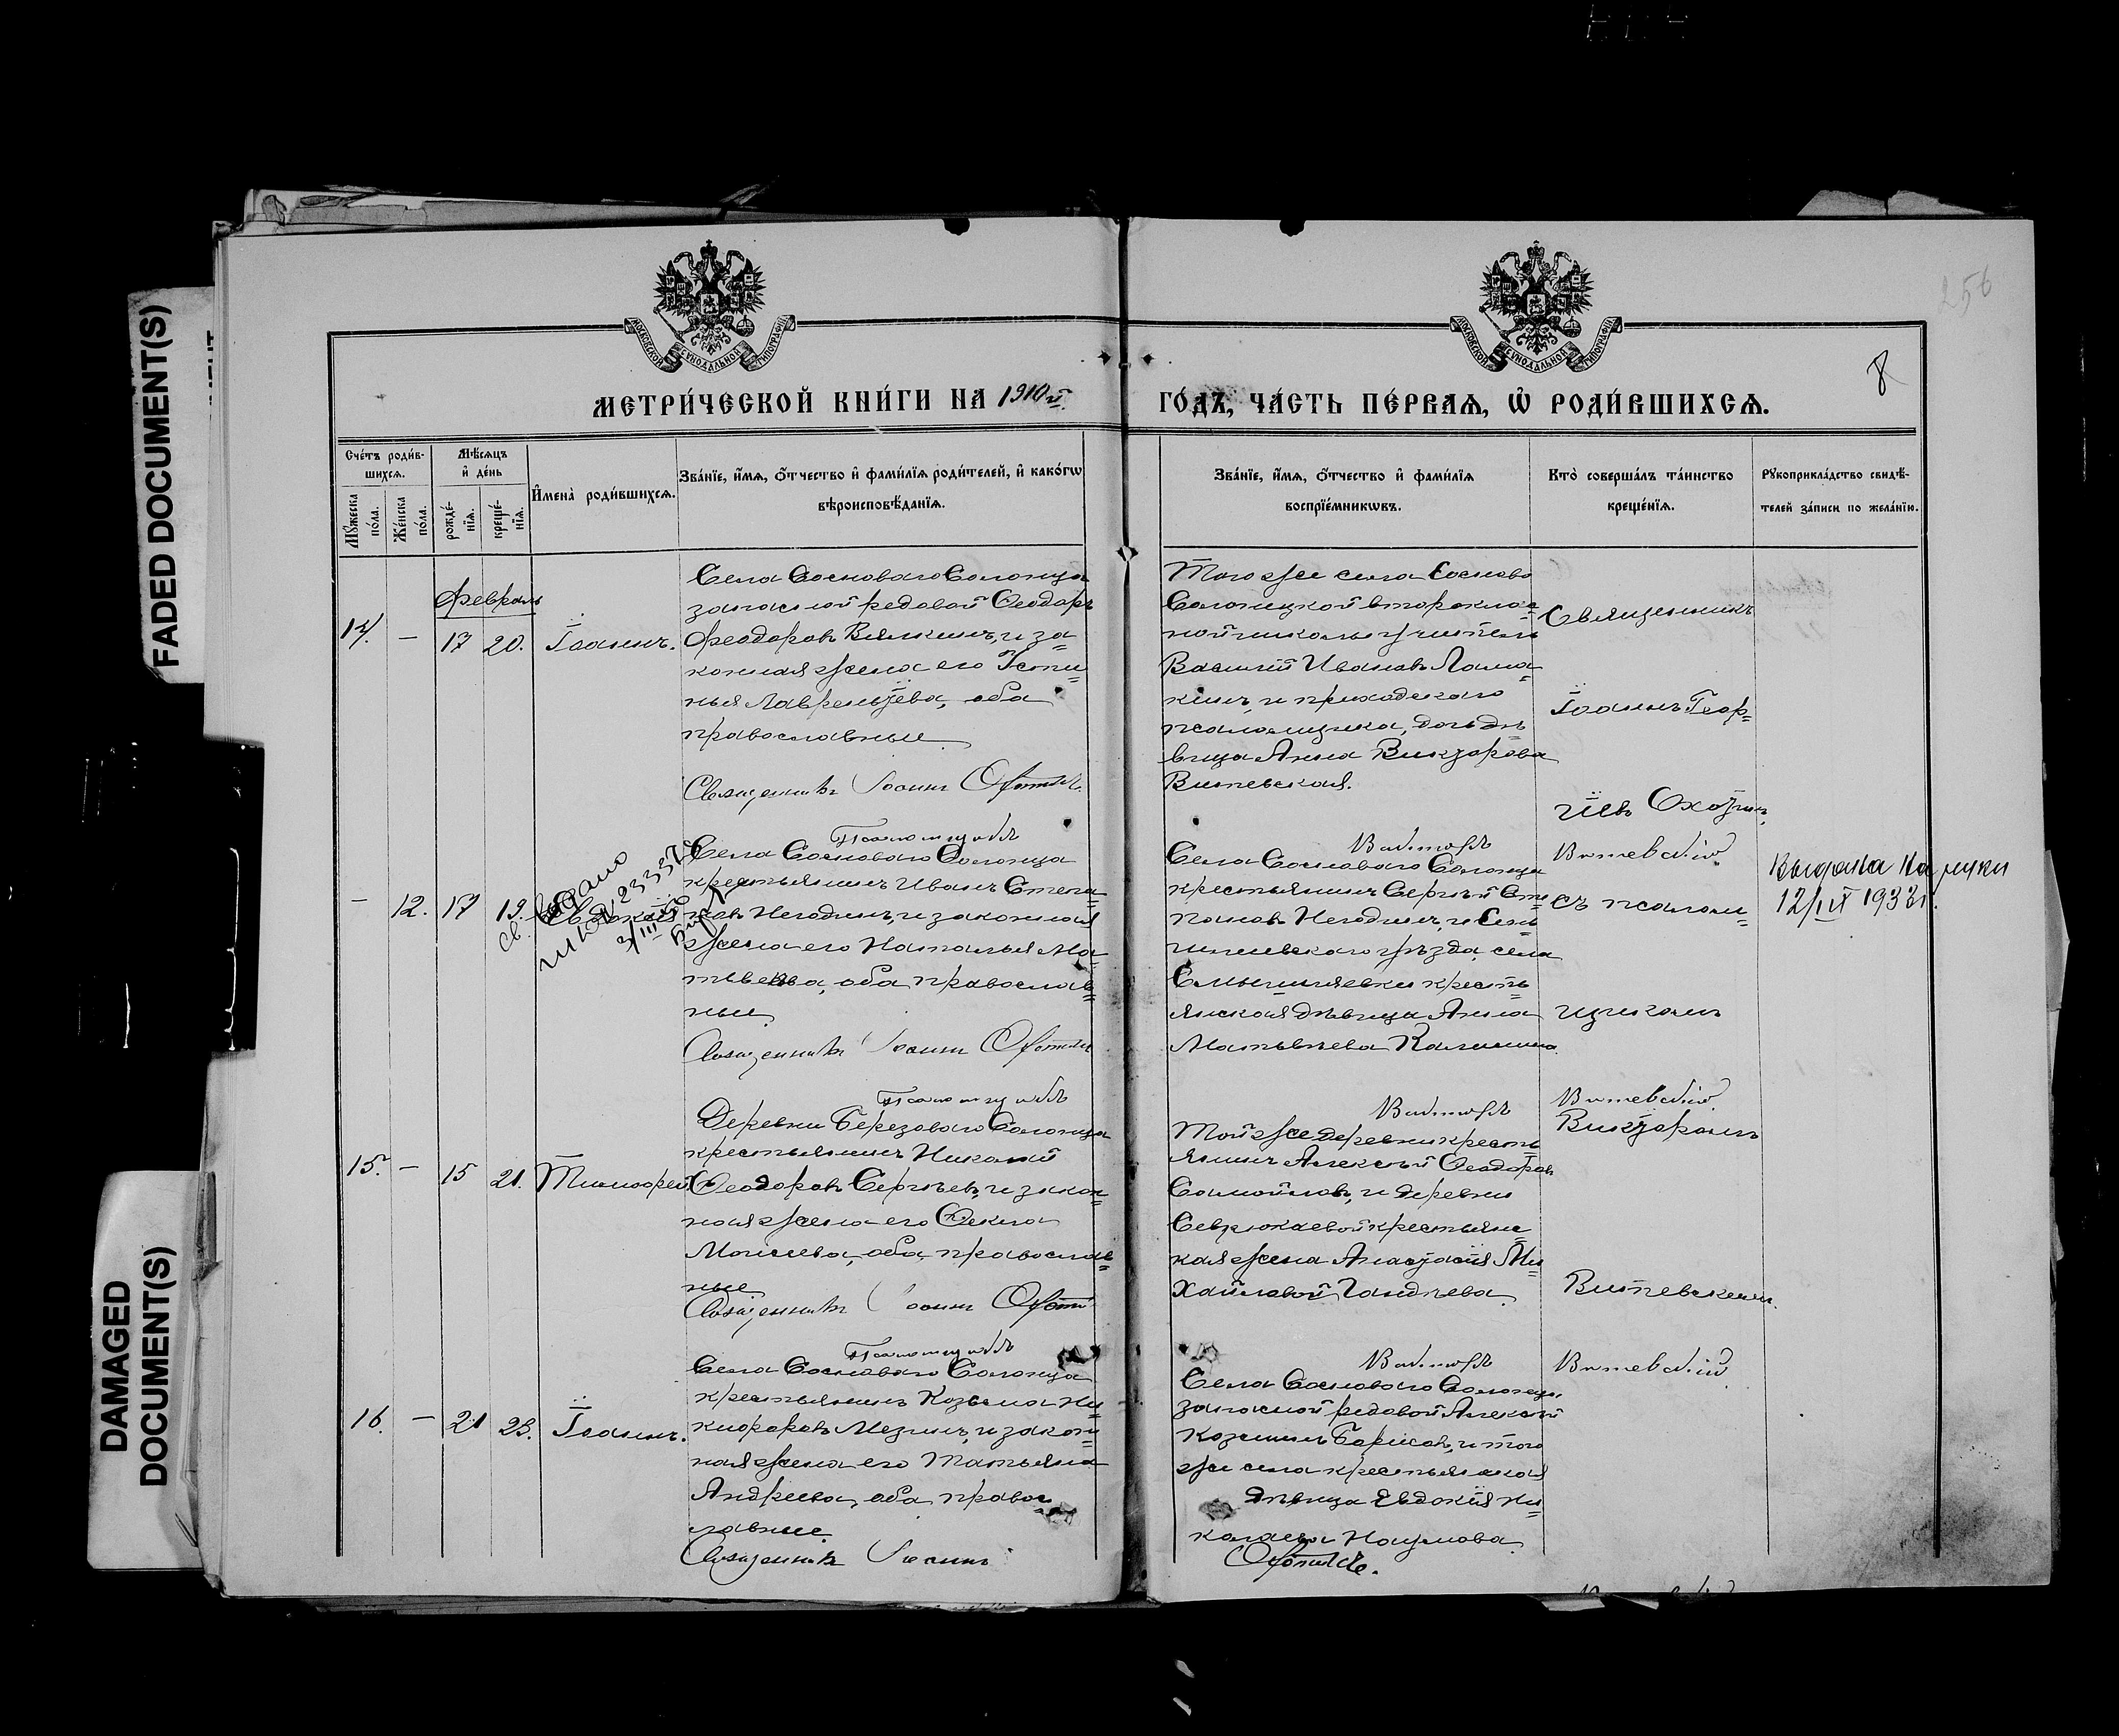 FADED DOCUMENT(S)
DAMAGED
DOCUMENT(S)
256
8
МОСКОВСКОЙ СѴНОДАЛЬНОЙ ТИПОГРАФІИ
МОСКОВСКОЙ СѴНОДАЛЬНОЙ ТИПОГРАФІИ
МЕТРИ́ЧЕСКОЙ КНИ́ГИ НА 1910 й.
ГО́ДЪ, ЧА́СТЬ ПЕ́РВАѦ, Ѡ҆ РОДИ́ВШИХСѦ.
Сче́тъ роди́в-
шихсѧ.
Мꙋ́жеска
по́ла.
Же́нска
по́ла.
Мѣ́сѧцъ
и҆ де́нь
рожде́-
нїѧ.
креще́-
нїѧ.
И҆мена̀ роди́вшихсѧ.
Зва́нїе, и҆́мѧ, ѻ҆́тчество и҆ фами́лїѧ роди́телей, и҆ како́гѡ
вѣроисповѣ́данїѧ.
Зва́нїе, и҆́мѧ, ѻ҆́тчество и҆ фами́лїѧ
воспрїе́мникѡвъ.
Кто̀ соверша́лъ та́инство
креще́нїѧ.
Рꙋкоприкла́дство свидѣ́-
телей за́писи по жела́нїю.
Февраль
14. — 17 20. Іоаннъ.
Села Сосноваго Солонца
запасной рядовой Ѳеодоръ
Феодоровъ Вялкинъ, и за=
конная жена его Усти=
нья Лаврентьева, оба
православные.
Священникъ Іоаннъ Охотинъ.
Псаломщикъ
Того же села Сосново
Солонецкой второклас=
ной школы учитель
Василій Ивановъ Лома=
кинъ, и приходскаго
псаломщика, дочь дѣ=
вица Анна Викторова
Витевская.
Викторъ
Священникъ
Іоаннъ Геор=
гіевъ Охотинъ,
Витевскій.
— 12. 17 19. Евдокія
Выдано
св. 
233378
3/III
Села Сосноваго Солонца
крестьянинъ Иванъ Степа=
новъ Негодинъ, и законная
жена его Наталья Ма=
твеева, оба православ=
ные.
Священникъ Іоаннъ Охотинъ
Псаломщикъ
Села Сосноваго Солонца
крестьянинъ Сергѣй Сте=
пановъ Негодинъ, и Сен=
гилеевскаго уѣзда, села
Смышляевки кресть=
янская дѣвица Анна
Матвѣева Калинина.
Викторъ
съ псалом=
щикомъ
Витевскій.
Выдана на руки
12/III 1933г.
15. — 15 21. Тимофей
Деревни Березоваго Солонца
крестьянинъ Николай
Ѳеодоровъ Сергѣевъ, и закон=
ная жена его Ѳекла
Моисеева, оба православ=
ные
Священникъ Іоаннъ Охотинъ
Псаломщикъ
Той же деревни кресть=
янинъ Алексѣй Ѳеодоровъ
Самойловъ, и деревни
Севрюкаевой крестьянс=
кая жена Анастасія Ми=
хайловой
Викторъ
Викторомъ
Витевскимъ.
Витевскій.
16. — 21 23. Іоаннъ.
Села Сосноваго Солонца
крестьянинъ Козьма Ни=
кифоровъ Мезинъ, и закон=
ная жена его Татьяна
Андреева, оба правос=
лавные
Священникъ Іоаннъ
Села Сосноваго Солонца,
запасной рядовой Алексѣй
Козминъ Борисовъ, и того
же села крестьянская
дѣвица Евдокія Ни=
колаева Наумова.
Охотинъ.